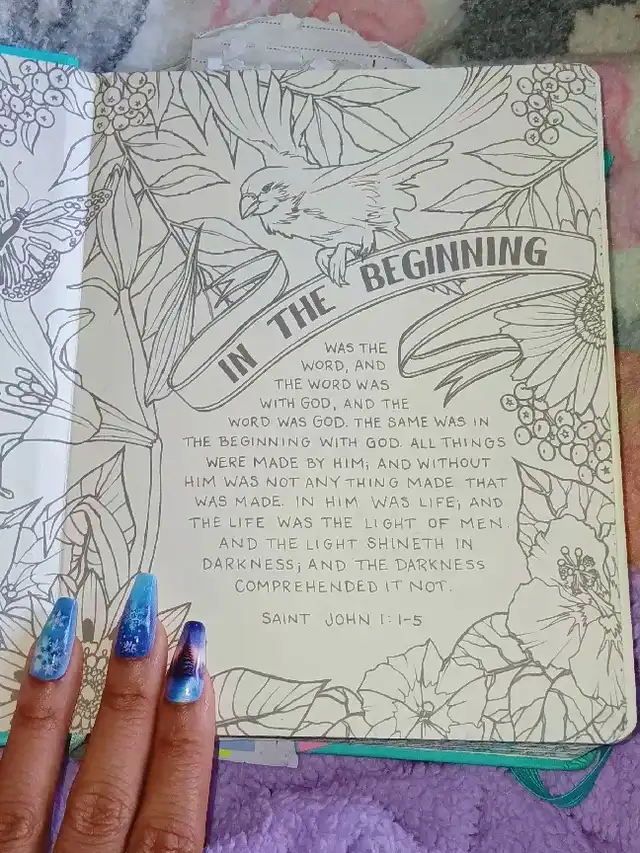 IN THE BEGINNING
WAS THE
WORD, AND
THE WORD WAS
WITH GOD, AND THE
WORD WAS GOD. THE SAME WAS IN
THE BEGINNING WITH GOD. ALL THINGS
WERE MADE BY HIM; AND WITHOUT
HIM WAS NOT ANY THING MADE THAT
WAS MADE. IN HIM WAS LIFE; AND
THE LIFE WAS THE LIGHT OF MEN.
AND THE LIGHT SHINETH IN
DARKNESS; AND THE DARKNESS
COMPREHENDED IT NOT.
SAINT JOHN 1:1-5